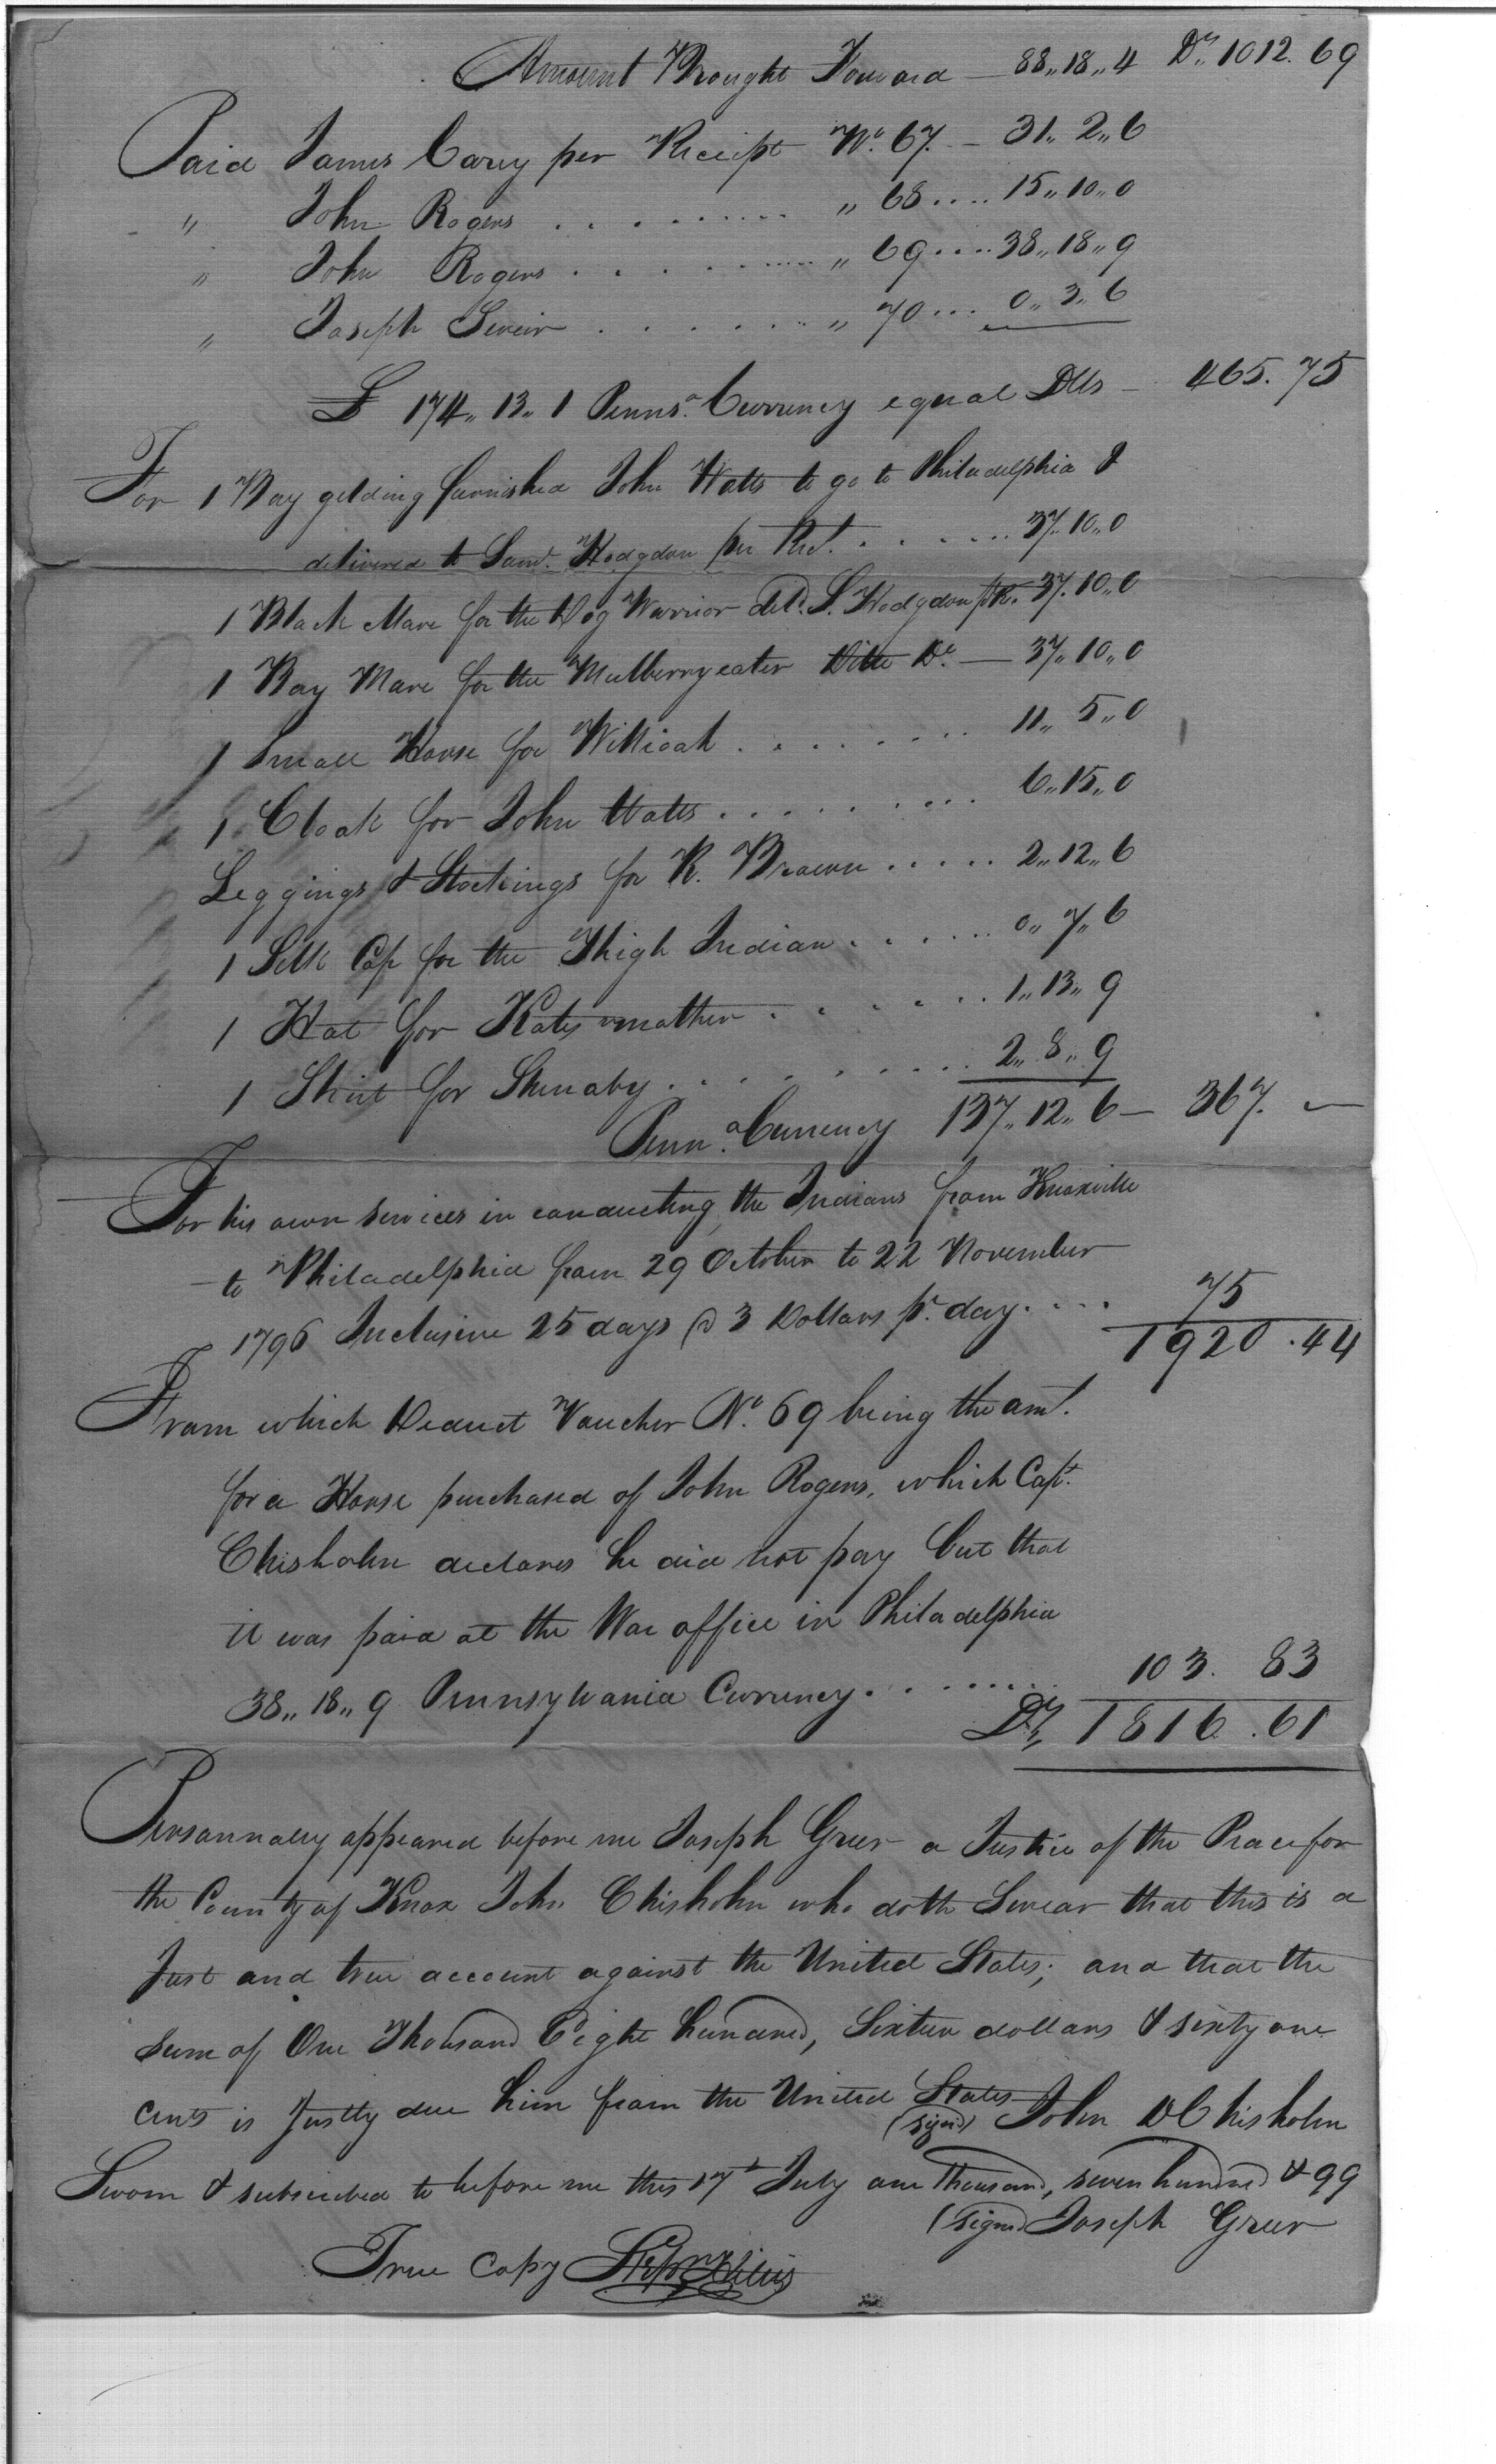 Amount Brought Forward — 88,,18,,4 Drs 1012.69
Paid James Carey per Receipt No. 67. — 31,, 2,, 6
,, John Rogers . . . . . . . . . ,, 68 .... 15,,10,,0
,, John Rogers . . . . . . . . . ,, 69 .... 38,,18,,9
,, Joseph Sevier . . . . . . . ,, 70 ... 0,, 3,, 6
£ 174,, 13,, 1 Pennsa. Currency equal Dlls — 465.75
For 1 Bay gelding furnished John Watts to go to Philadelphia &
delivered to Saml. Hodgdon per Rect. . . . . . . . 37.10,,0
1 Black Mare for the Dog Warrior deld. S. Hodgdon pr R. 37.10,,0
1 Bay Mare for the Mulberry eater Ditto Do. — 37,,10,,0
1 Small Horse for Willioah . . . . . . . . 11,, 5,,0
1 Cloak for John Watts . . . . . . . . . 6,,15,,0
Leggings & Stockings for R. Brown . . . . . 2,,12,,6
1 Silk Cap for the Thigh Indian . . . . . . 0,, 7,,6
1 Hat for Katys mother . . . . . . . 1,,13,, 9
1 Shirt for Shenaby . . . . . . . . . . 2,, 8,, 9
Penna. Currency 137,,12,,6 — 367. —
For his own services in conducting the Indians from Knoxville
to Philadelphia from 29 October to 22 November
1796 Inclusive 25 days @ 3 Dollars pr. day. . . . 75
1920.44
From which Deduct Voucher No. 69 being the amt.
for a Horse purchased of John Rogers, which Capt.
Chisholm declares he did not pay but that
it was paid at the War office in Philadelphia
38,,18,,9 Pennsylvania Currency . . . . . . . 103. 83
Drs 1816.61
Personnally appeared before me Joseph Greer a Justice of the Peace for
the County of Knox John Chisholm who doth Swear that this is a
Just and true account against the United States; and that the
sum of One Thousand Eight hundred, Sixteen dollars & sixty one
cents is Justly due him from the United States
(signd) John D Chisholm
Sworn & subscribed to before me this 17t July one Thousand, seven hundred & 99
(signd) Joseph Greer
True Copy